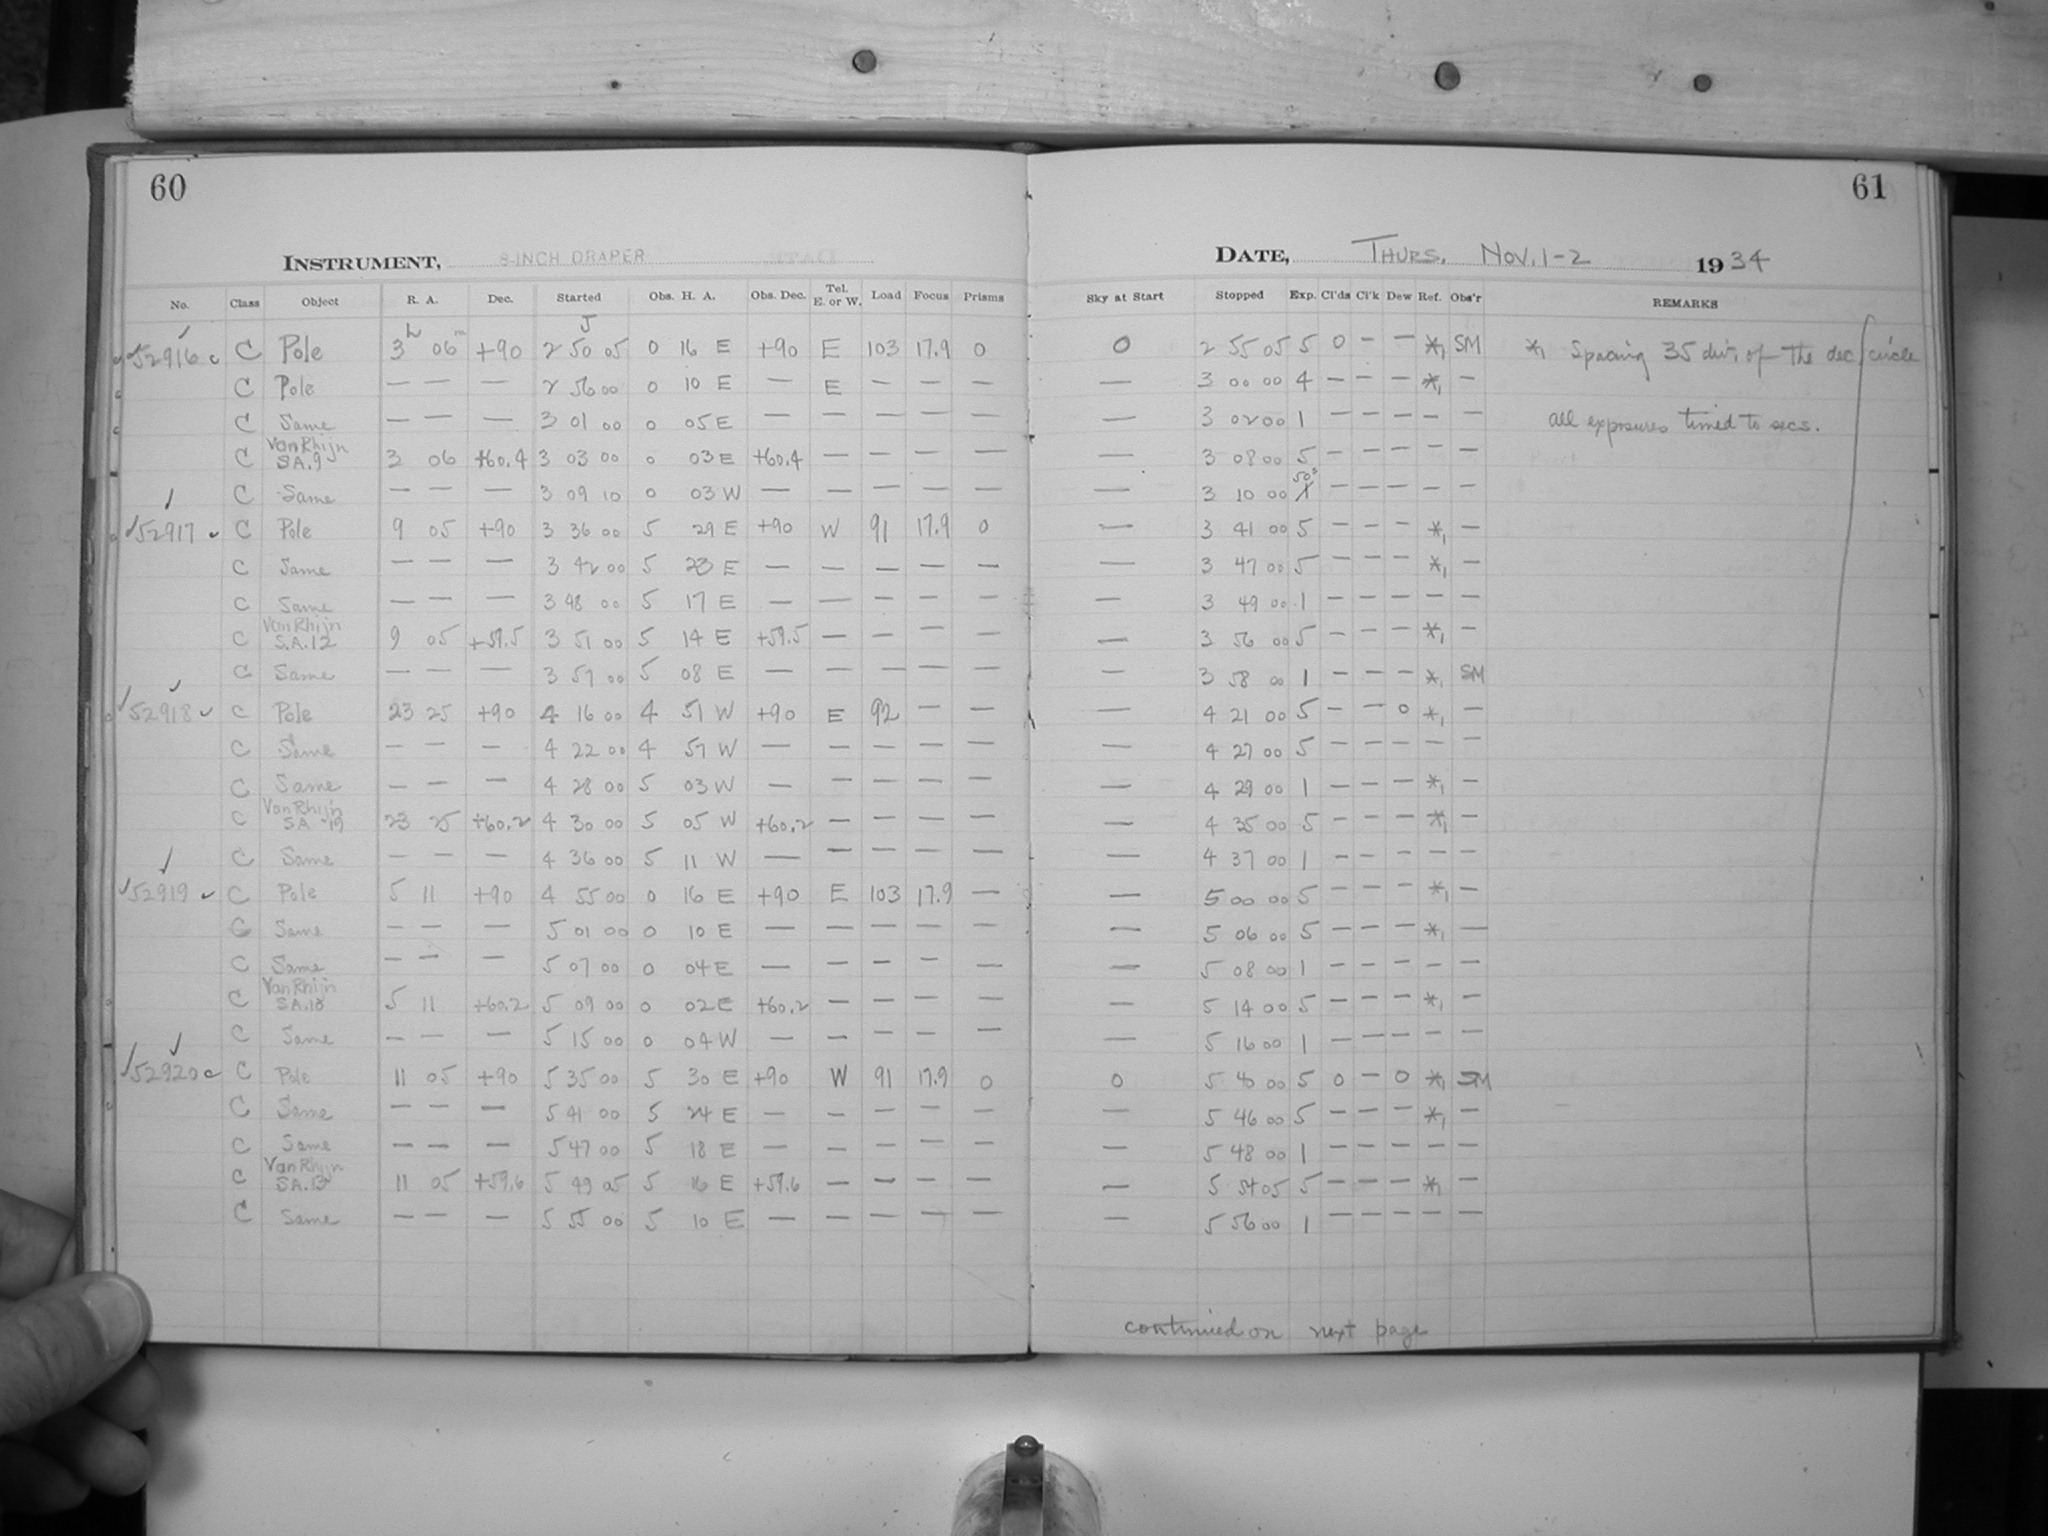 60
61
INSTRUMENT, 8-INCH DRAPER
DATE, THURS. NOV. 1-2 1934
No. Class Object R. A. Dec. Started Obs. H. A. Obs. Dec. Tel. E. or W. Load Focus Prisms Sky at Start Stopped Exp. Cl'ds Cl'k Dew Ref. Obs'r REMARKS
h m J
✓52916 C Pole 3 06 +90 2 50 05 0 16 E +90 E 103 17.9 0 0 2 55 05 5 0 – – *1 SM *1 Spacing 35 div. of the dec circle
C Pole — — — 2 56 00 0 10 E — E — — — — 3 00 00 4 – – – *1 –
C Same — — — 3 01 00 0 05 E — — — — — — 3 02 00 1 – – – – – all exposures timed to secs.
C Van Rhijn S.A. 9 3 06 +60.4 3 03 00 0 03 E +60.4 — — — — — 3 08 00 5 – – – – –
C Same — — — 3 09 10 0 03 W — — — — — — 3 10 00 50s – – – – –
✓52917 C Pole 9 05 +90 3 36 00 5 29 E +90 W 91 17.9 0 — 3 41 00 5 – – – *1 –
C Same — — — 3 42 00 5 23 E — — — — — — 3 47 00 5 – – – *1 –
C Same — — — 3 48 00 5 17 E — — — — — — 3 49 00 1 – – – – –
C Van Rhijn S.A. 12 9 05 +59.5 3 51 00 5 14 E +59.5 — — — — — 3 56 00 5 – – – *1 –
C Same — — — 3 57 00 5 08 E — — — — — — 3 58 00 1 – – – *1 SM
✓52918 C Pole 23 25 +90 4 16 00 4 51 W +90 E 92 — — — 4 21 00 5 – – 0 *1 –
C Same — — — 4 22 00 4 57 W — — — — — — 4 27 00 5 – – – – –
C Same — — — 4 28 00 5 03 W — — — — — — 4 29 00 1 – – – *1 –
C Van Rhijn SA 19 23 25 +60.2 4 30 00 5 05 W +60.2 — — — — — 4 35 00 5 – – – *1 –
C Same — — — 4 36 00 5 11 W — — — — — — 4 37 00 1 – – – – –
✓52919 C Pole 5 11 +90 4 55 00 0 16 E +90 E 103 17.9 — — 5 00 00 5 – – – *1 –
C Same — — — 5 01 00 0 10 E — — — — — — 5 06 00 5 – – – *1 –
C Same — — — 5 07 00 0 04 E — — — — — — 5 08 00 1 – – – – –
C Van Rhijn SA. 10 5 11 +60.2 5 09 00 0 02 E +60.2 — — — — — 5 14 00 5 – – – *1 –
C Same — — — 5 15 00 0 04 W — — — — — — 5 16 00 1 – – – – –
✓52920 C Pole 11 05 +90 5 35 00 5 30 E +90 W 91 17.9 0 0 5 40 00 5 0 – 0 *1 SM
C Same — — — 5 41 00 5 24 E — — — — — — 5 46 00 5 – – – *1 –
C Same — — — 5 47 00 5 18 E — — — — — — 5 48 00 1 – – – – –
C Van Rhijn SA. 13 11 05 +59.6 5 49 05 5 16 E +59.6 — — — — — 5 54 05 5 – – – *1 –
C Same — — — 5 55 00 5 10 E — — — — — — 5 56 00 1 – – – – –
continued on next page